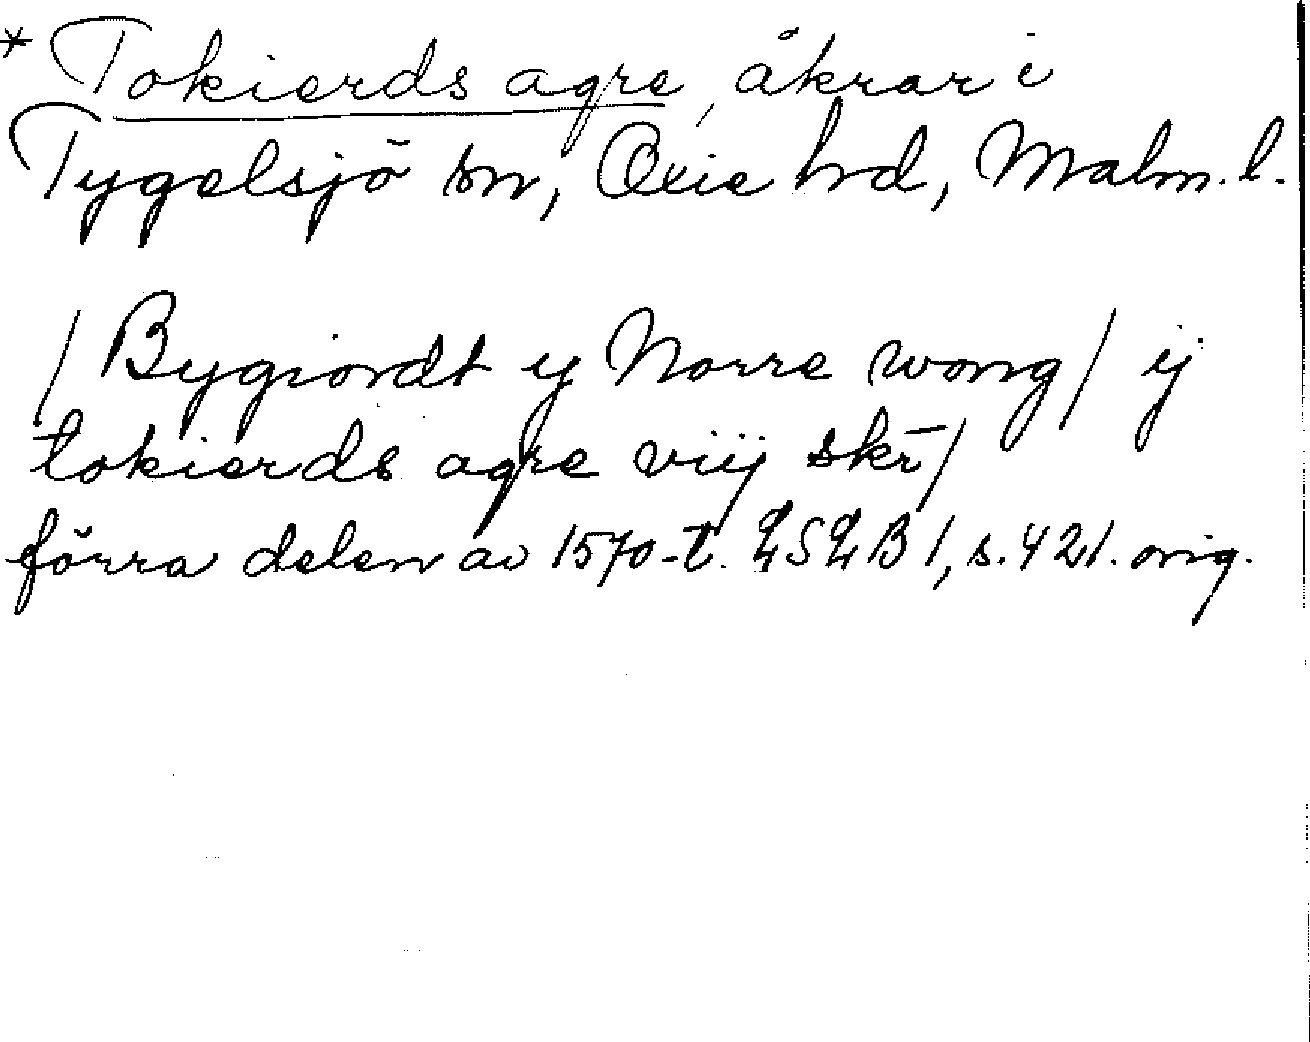 * Tokierds agre, åkrar i
Tygelsjö sn, Oxie hd, Malm. l.
/ Bygiordt y Norre wong / ij
tokierds agre viij skr̄ /
förra delen av 1570-t. LSLB 1, s. 421. orig.